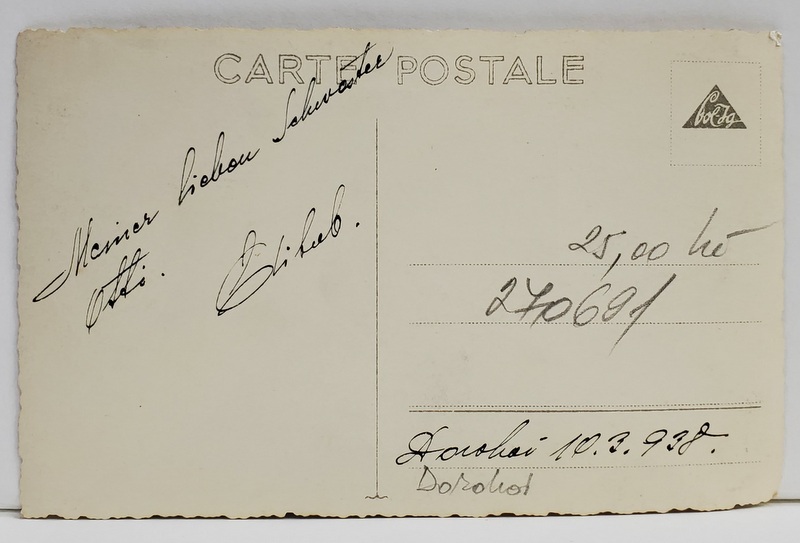 CARTE POSTALE
Meiner lieben Schwester
Otti.
25,00 kč
270691
Dorohoi 10.3.938.
Dorohoi